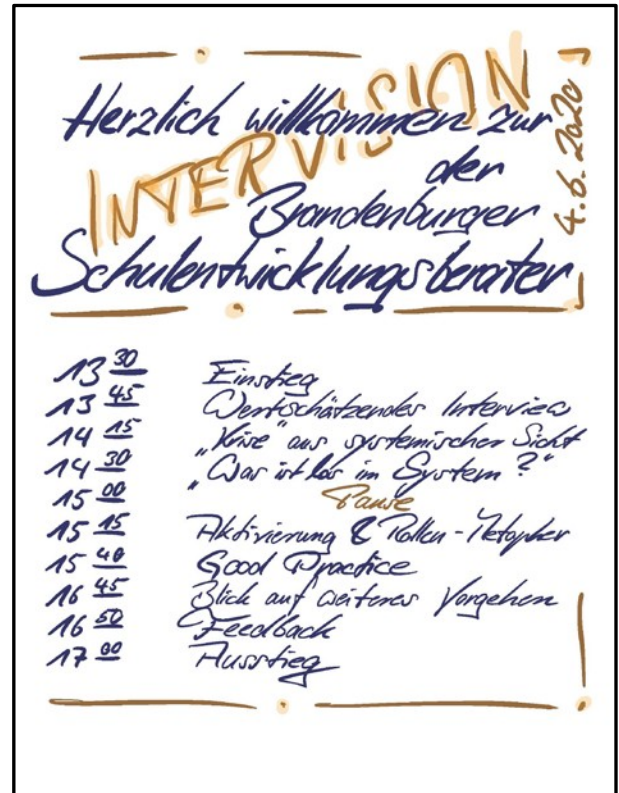 Herzlich willkommen zur
INTERVISION
der
Brandenburger
Schulentwicklungsberater
4.6.2020
13 30 Einstieg
13 45 Wertschätzendes Interview
14 15 „Krise" aus systemischer Sicht
14 30 „Was ist los im System?"
15 00 Pause
15 15 Aktivierung & Rollen-Metapher
15 40 Good Practice
16 45 Blick auf weiteres Vorgehen
16 50 Feedback
17 00 Ausstieg